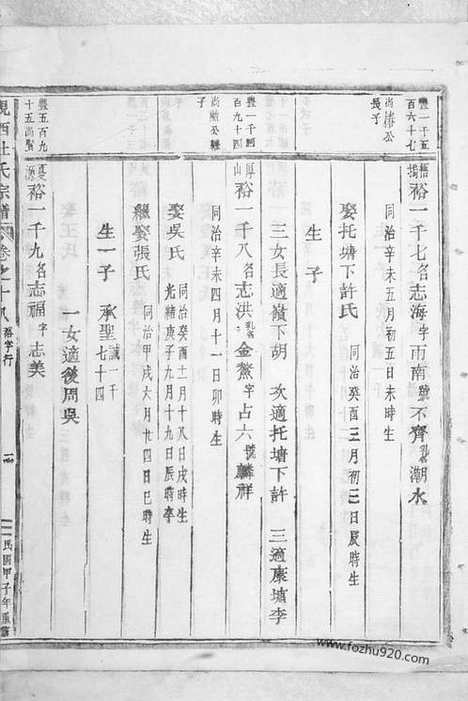 豊一千五
百六十七
尚椿公
長子
裕一千七名志海字雨南號不齊乳名潮水
同治辛未五月初五日未時生
娶托塘下許氏 同治癸酉三月初三日辰時生
生子
三女長適嶺下胡 次適托塘下許 三適康塘李
豊一千四
百九十四
子
裕一千八名志洪乳名金鰲字占六號麟祥
同治辛未四月十一日卯時生
娶吳氏 同治癸酉十一月十八日戌時生
光緒庚子九月十九日辰時卒
繼娶張氏 同治甲戌六月廿四日巳時生
生一子 承聖誠一千
七十四
一女適後周吳
豊五百九
十五尚賢
裕一千九名志福字志美
峴西杜氏宗譜 卷之十八 裕字行
民國甲子年重修
www.fozhu920.com